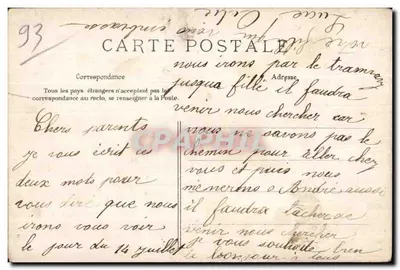 93
CARTE POSTALE
Correspondance
Tous les pays étrangers n'acceptent pas la
correspondance au recto, se renseigner à la Poste.
Adresse
Chers parents
je vous ecrit ces
deux mots pour
vous dire que nous
irons vous voir
le jour du 14 juillet
nous irons par le tramway
jusqua fille il faudra
venir nous chercher car
nous ne savons pas le
chemin pour aller chez
vous et puis nous
menerons André aussi
il faudra tacher de
venir nous chercher
je vous souhaite bien
le bonjour a tous
votre fille qui vous embrasse
Lucie